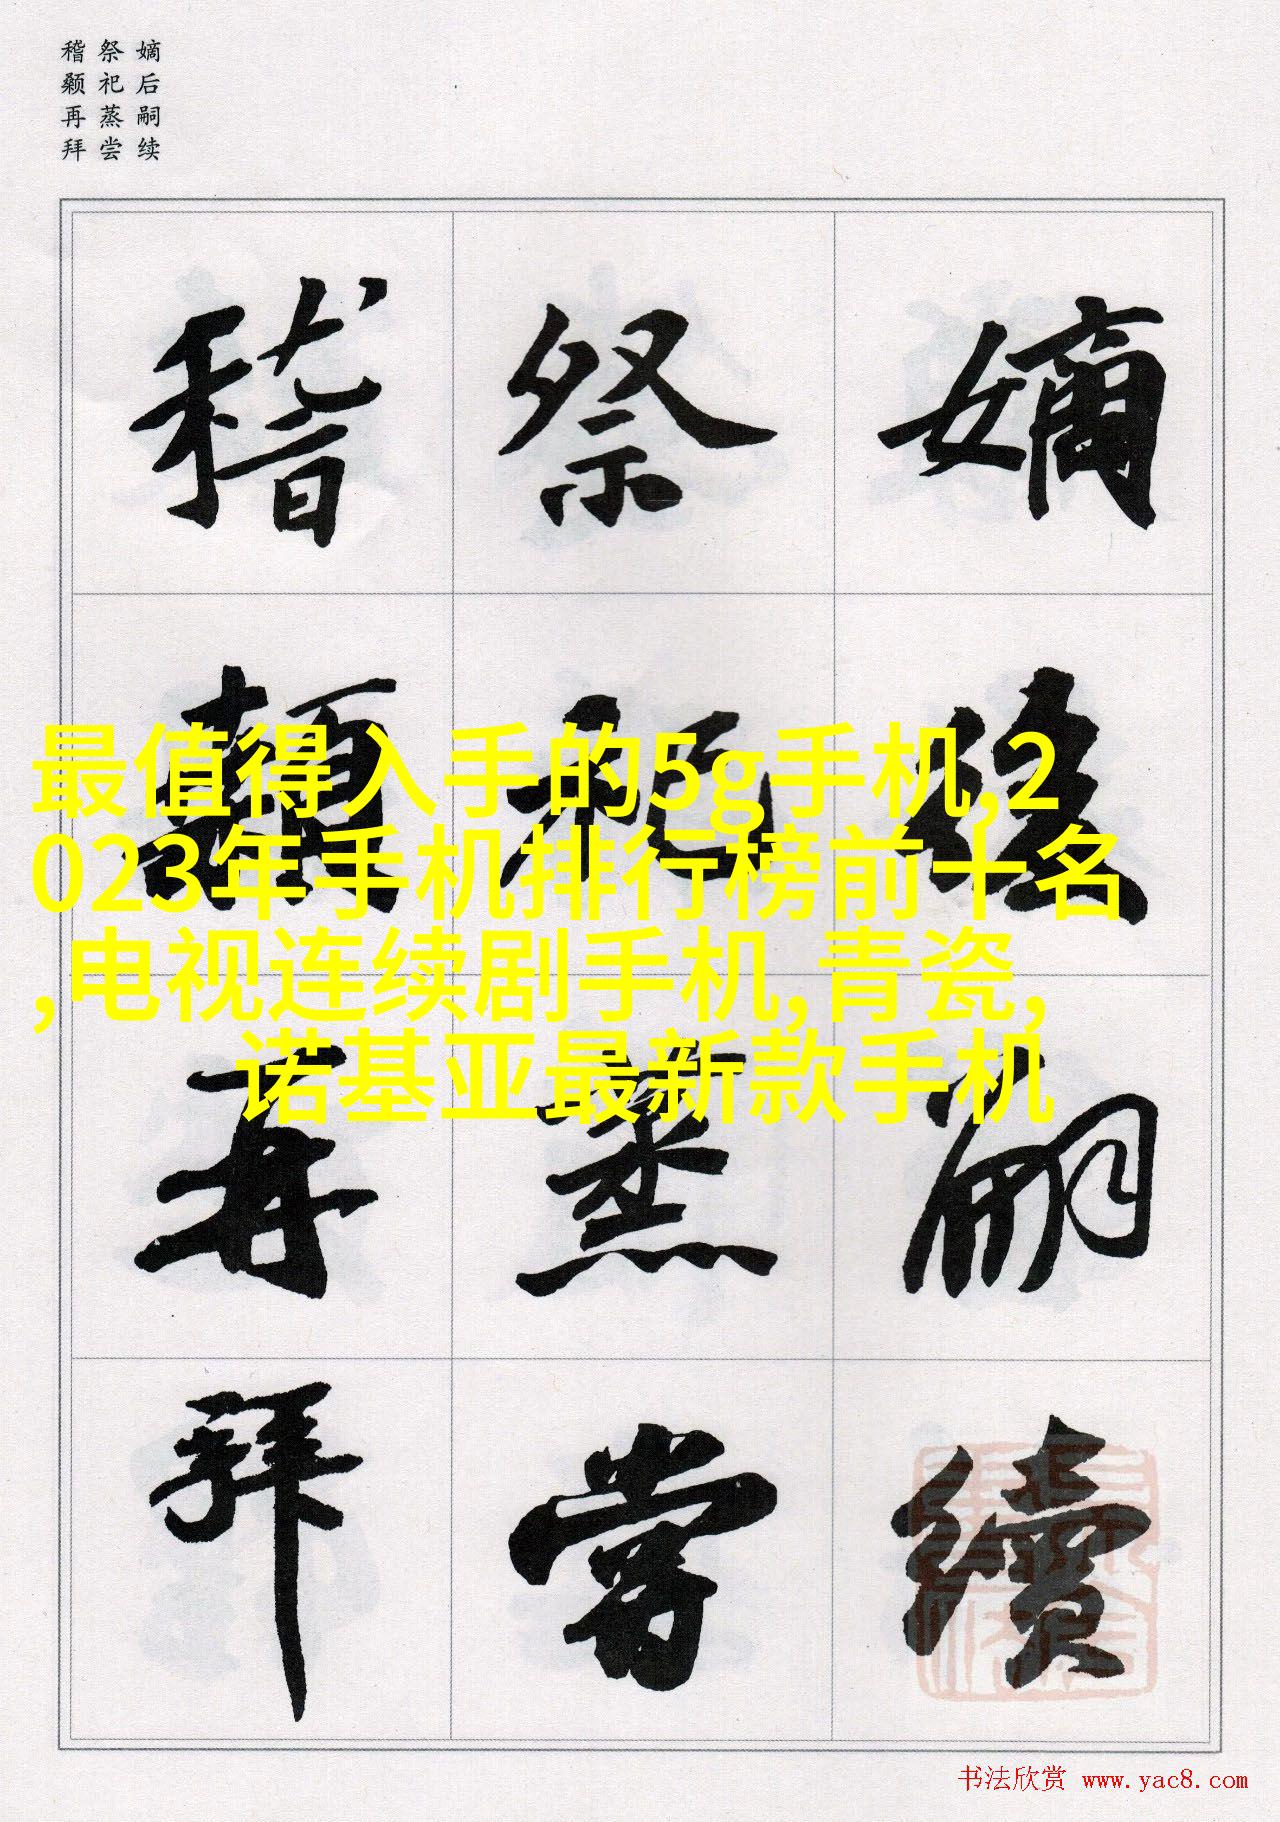 嫡后嗣续
祭祀蒸尝
稽颡再拜
嫡後嗣續
祭祀蒸嘗
稽顙再拜
最值得入手的5g手机,2
023年手机排行榜前十名
,电视连续剧手机,青瓷,
诺基亚最新款手机
书法欣赏 www.yac8.com